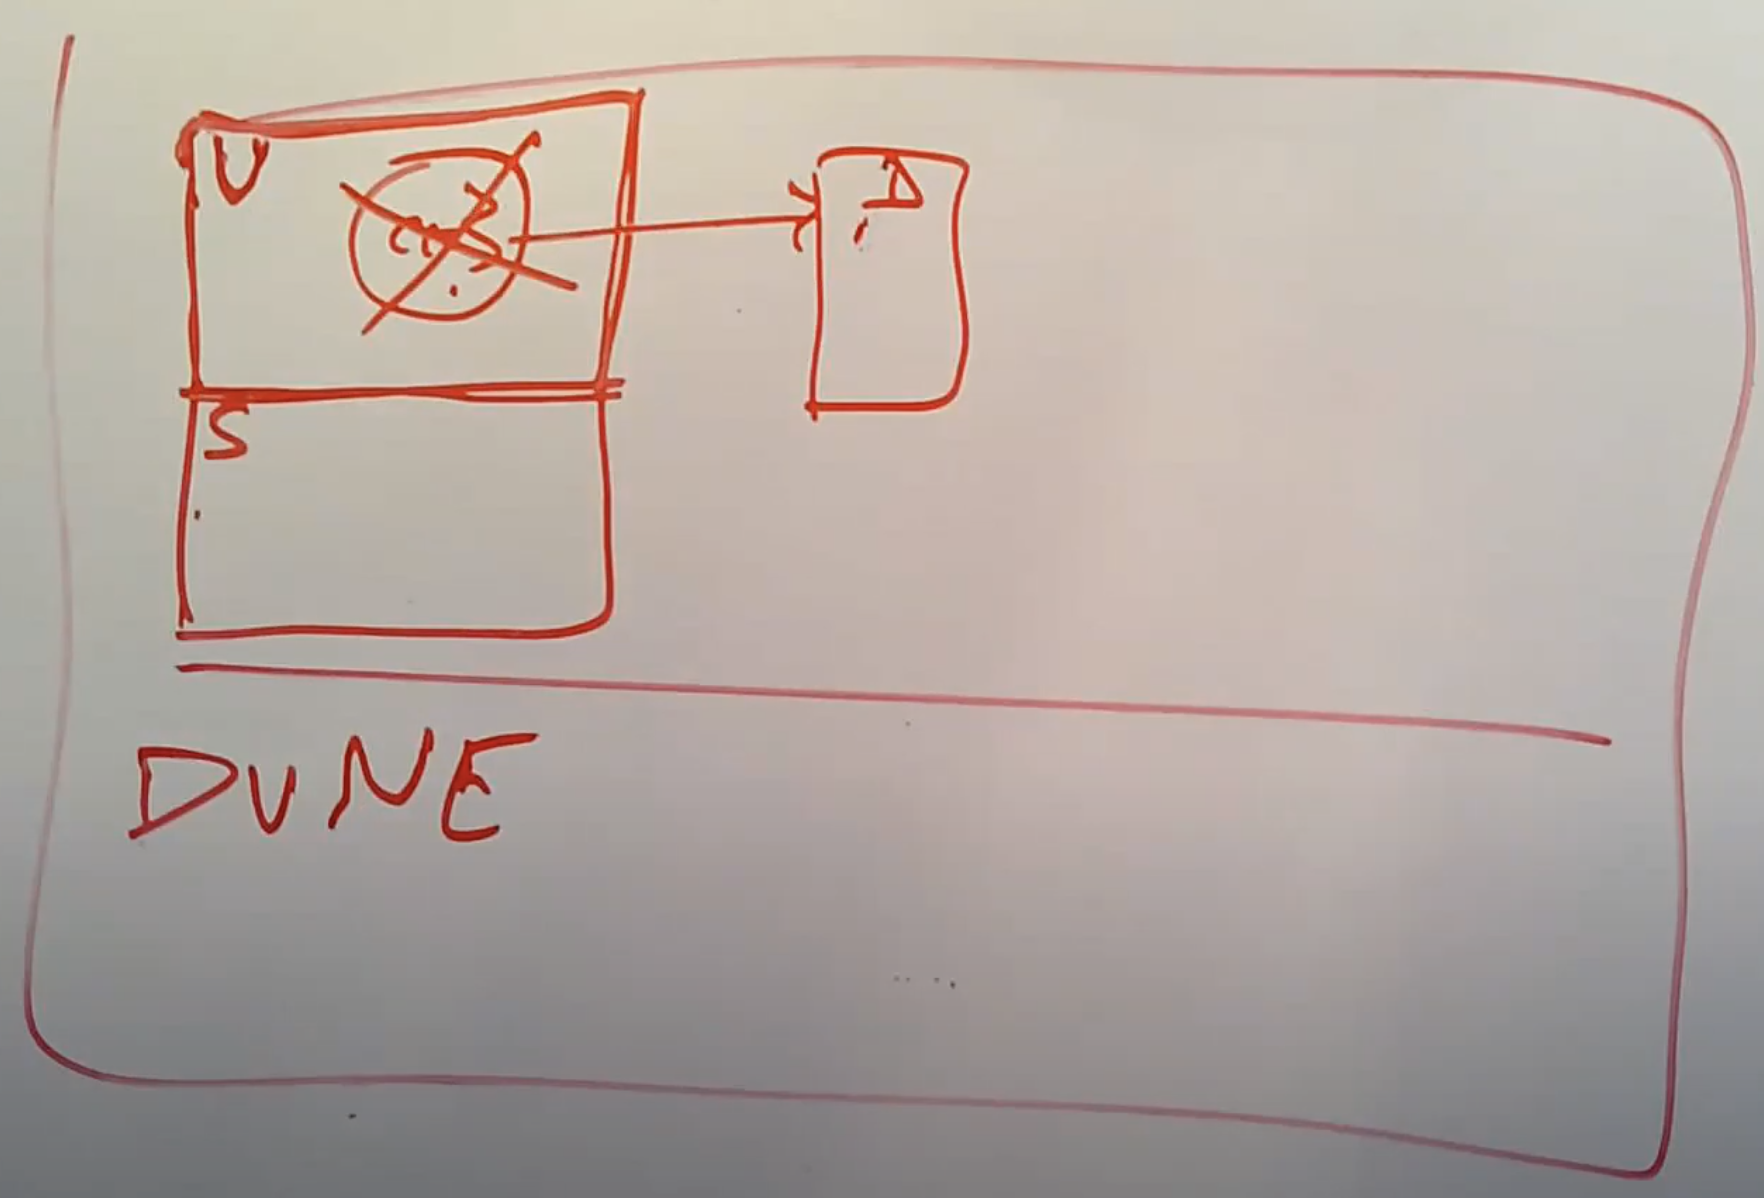 U
D
S
DUNE